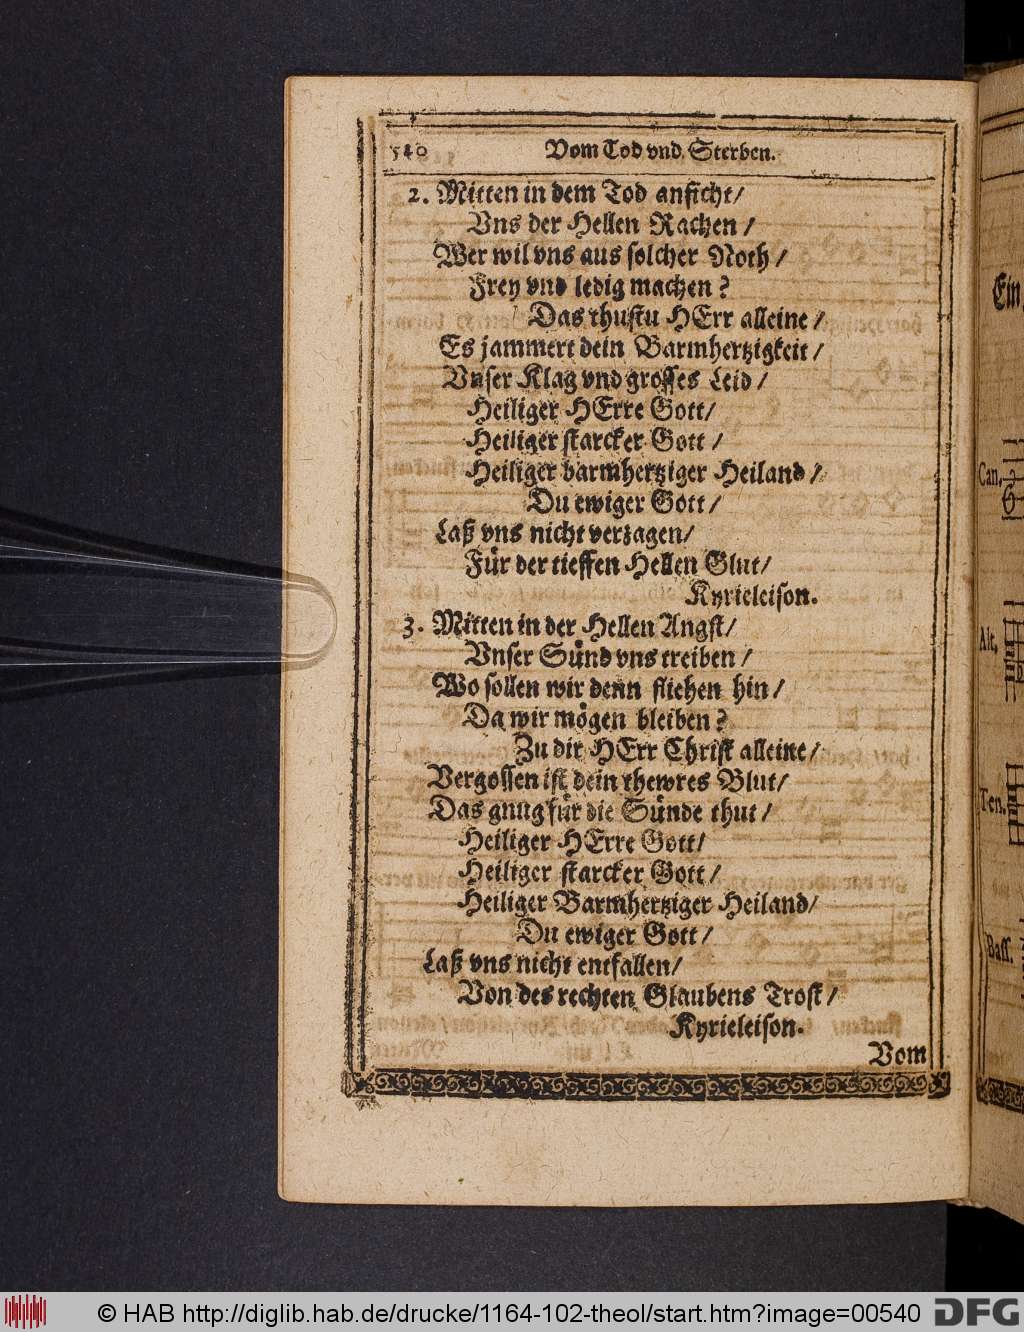 510 Vom Tod vnd Sterben.
2. Mitten in dem Tod anficht/
Vns der Hellen Rachen /
Wer wil vns aus solcher Noth /
Frey vnd ledig machen ?
Das thustu HErr alleine /
Es jammert dein Barmhertzigkeit /
Vnser Klag vnd grosses Leid /
Heiliger HErre Gott/
Heiliger starcker Gott /
Heiliger barmhertziger Heiland /
Du ewiger Gott /
Laß vns nicht verzagen/
Für der tieffen Hellen Glut/
Kyrieleison.
3. Mitten in der Hellen Angst/
Vnser Sünd vns treiben /
Wo sollen wir denn fliehen hin /
Da wir mögen bleiben ?
Zu dir HErr Christ alleine /
Vergossen ist dein thewres Blut/
Das gnug für die Sünde thut /
Heiliger HErre Gott/
Heiliger starcker Gott /
Heiliger Barmhertziger Heiland/
Du ewiger Gott /
Laß vns nicht entfallen/
Von des rechten Glaubens Trost /
Kyrieleison.
Vom
Ein
Can.
Alt.
Ten.
Bass.
© HAB http://diglib.hab.de/drucke/1164-102-theol/start.htm?image=00540 DFG